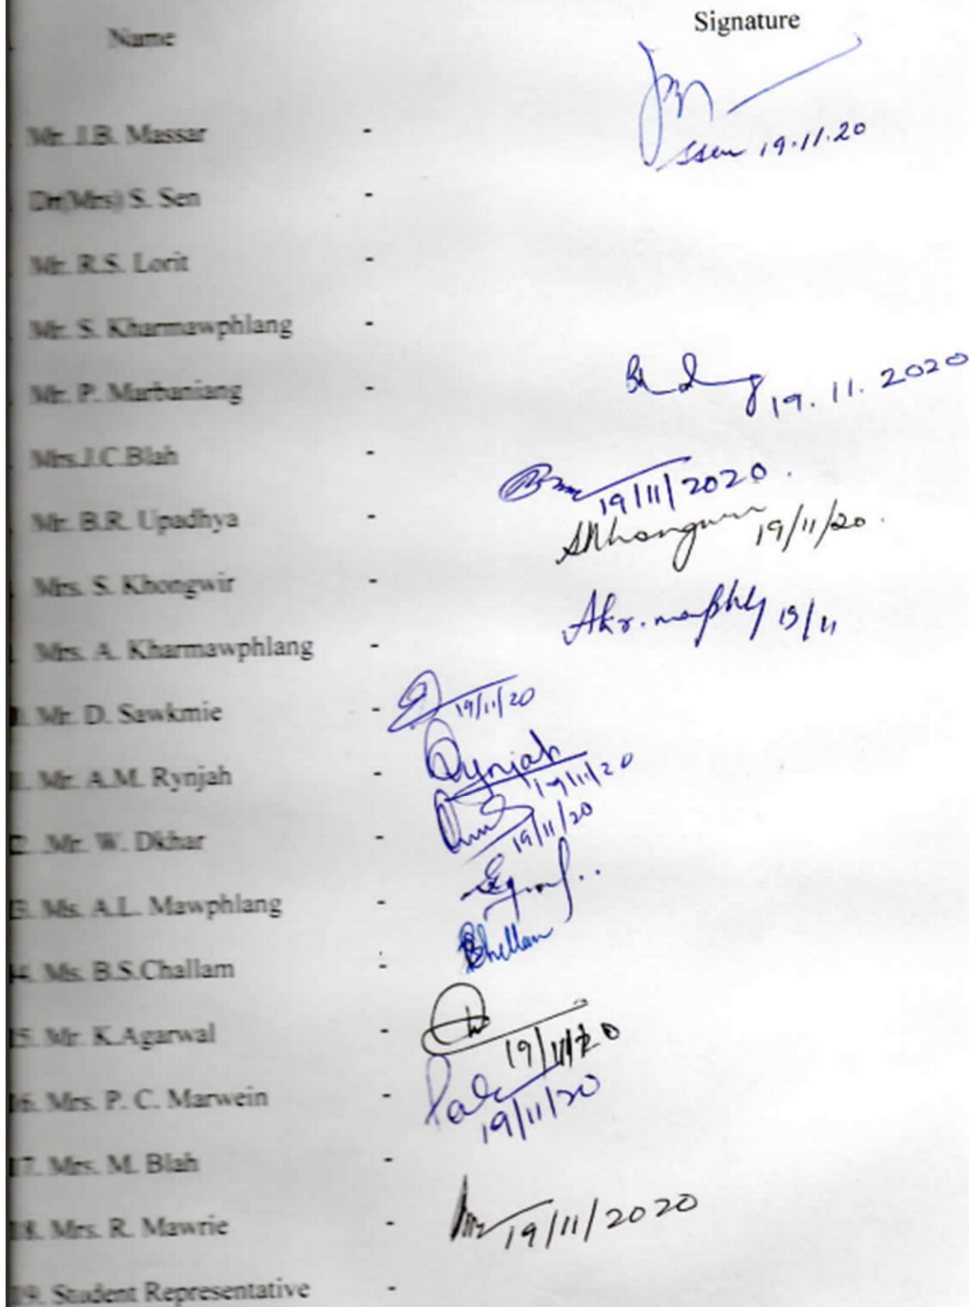 Name Signature
Mr. J.B. Massar -
ssen 19.11.20
Dr(Mrs) S. Sen -
Mr. R.S. Lorit -
Mr. S. Kharmawphlang -
Mr. P. Marbaniang - 19.11.2020
Mrs.J.C.Blah -
19/11/2020.
Mr. B.R. Upadhya - 19/11/20.
Mrs. S. Khongwir -
Mrs. A. Kharmawphlang -
Mr. D. Sawkmie - 19/11/20
Mr. A.M. Rynjah - Rynjah 19/11/20
2. Mr. W. Dkhar - 19/11/20
3. Ms. A.L. Mawphlang -
14. Ms. B.S.Challam -
15. Mr. K.Agarwal - 19/11/20
16. Mrs. P. C. Marwein - 19/11/20
17. Mrs. M. Blah -
18. Mrs. R. Mawrie - 19/11/2020
19. Student Representative -